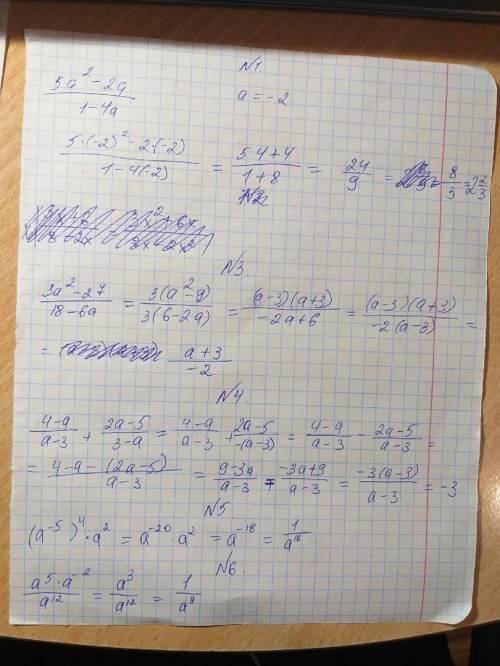 N1.
(5a² - 2a)/(1 - 4a)   a = -2
(5·(-2)² - 2·(-2))/(1 - 4(-2)) = (5·4 + 4)/(1 + 8) = 24/9 = 8/3 = 2 2/3
N3.
(3a² - 27)/(18 - 6a) = (3(a² - 9))/(3(6 - 2a)) = ((a-3)(a+3))/(-2a + 6) = ((a-3)(a+3))/(-2(a-3)) =
= (a+3)/(-2)
N4
(4-a)/(a-3) + (2a-5)/(3-a) = (4-a)/(a-3) + (2a-5)/(-(a-3)) = (4-a)/(a-3) - (2a-5)/(a-3) =
= (4-a-(2a-5))/(a-3) = (9-3a)/(a-3) = (-3a+9)/(a-3) = (-3(a-3))/(a-3) = -3
N5
(a⁻⁵)⁴·a² = a⁻²⁰·a² = a⁻¹⁸ = 1/a¹⁸
N6.
(a⁵·a⁻²)/a¹² = a³/a¹² = 1/a⁹